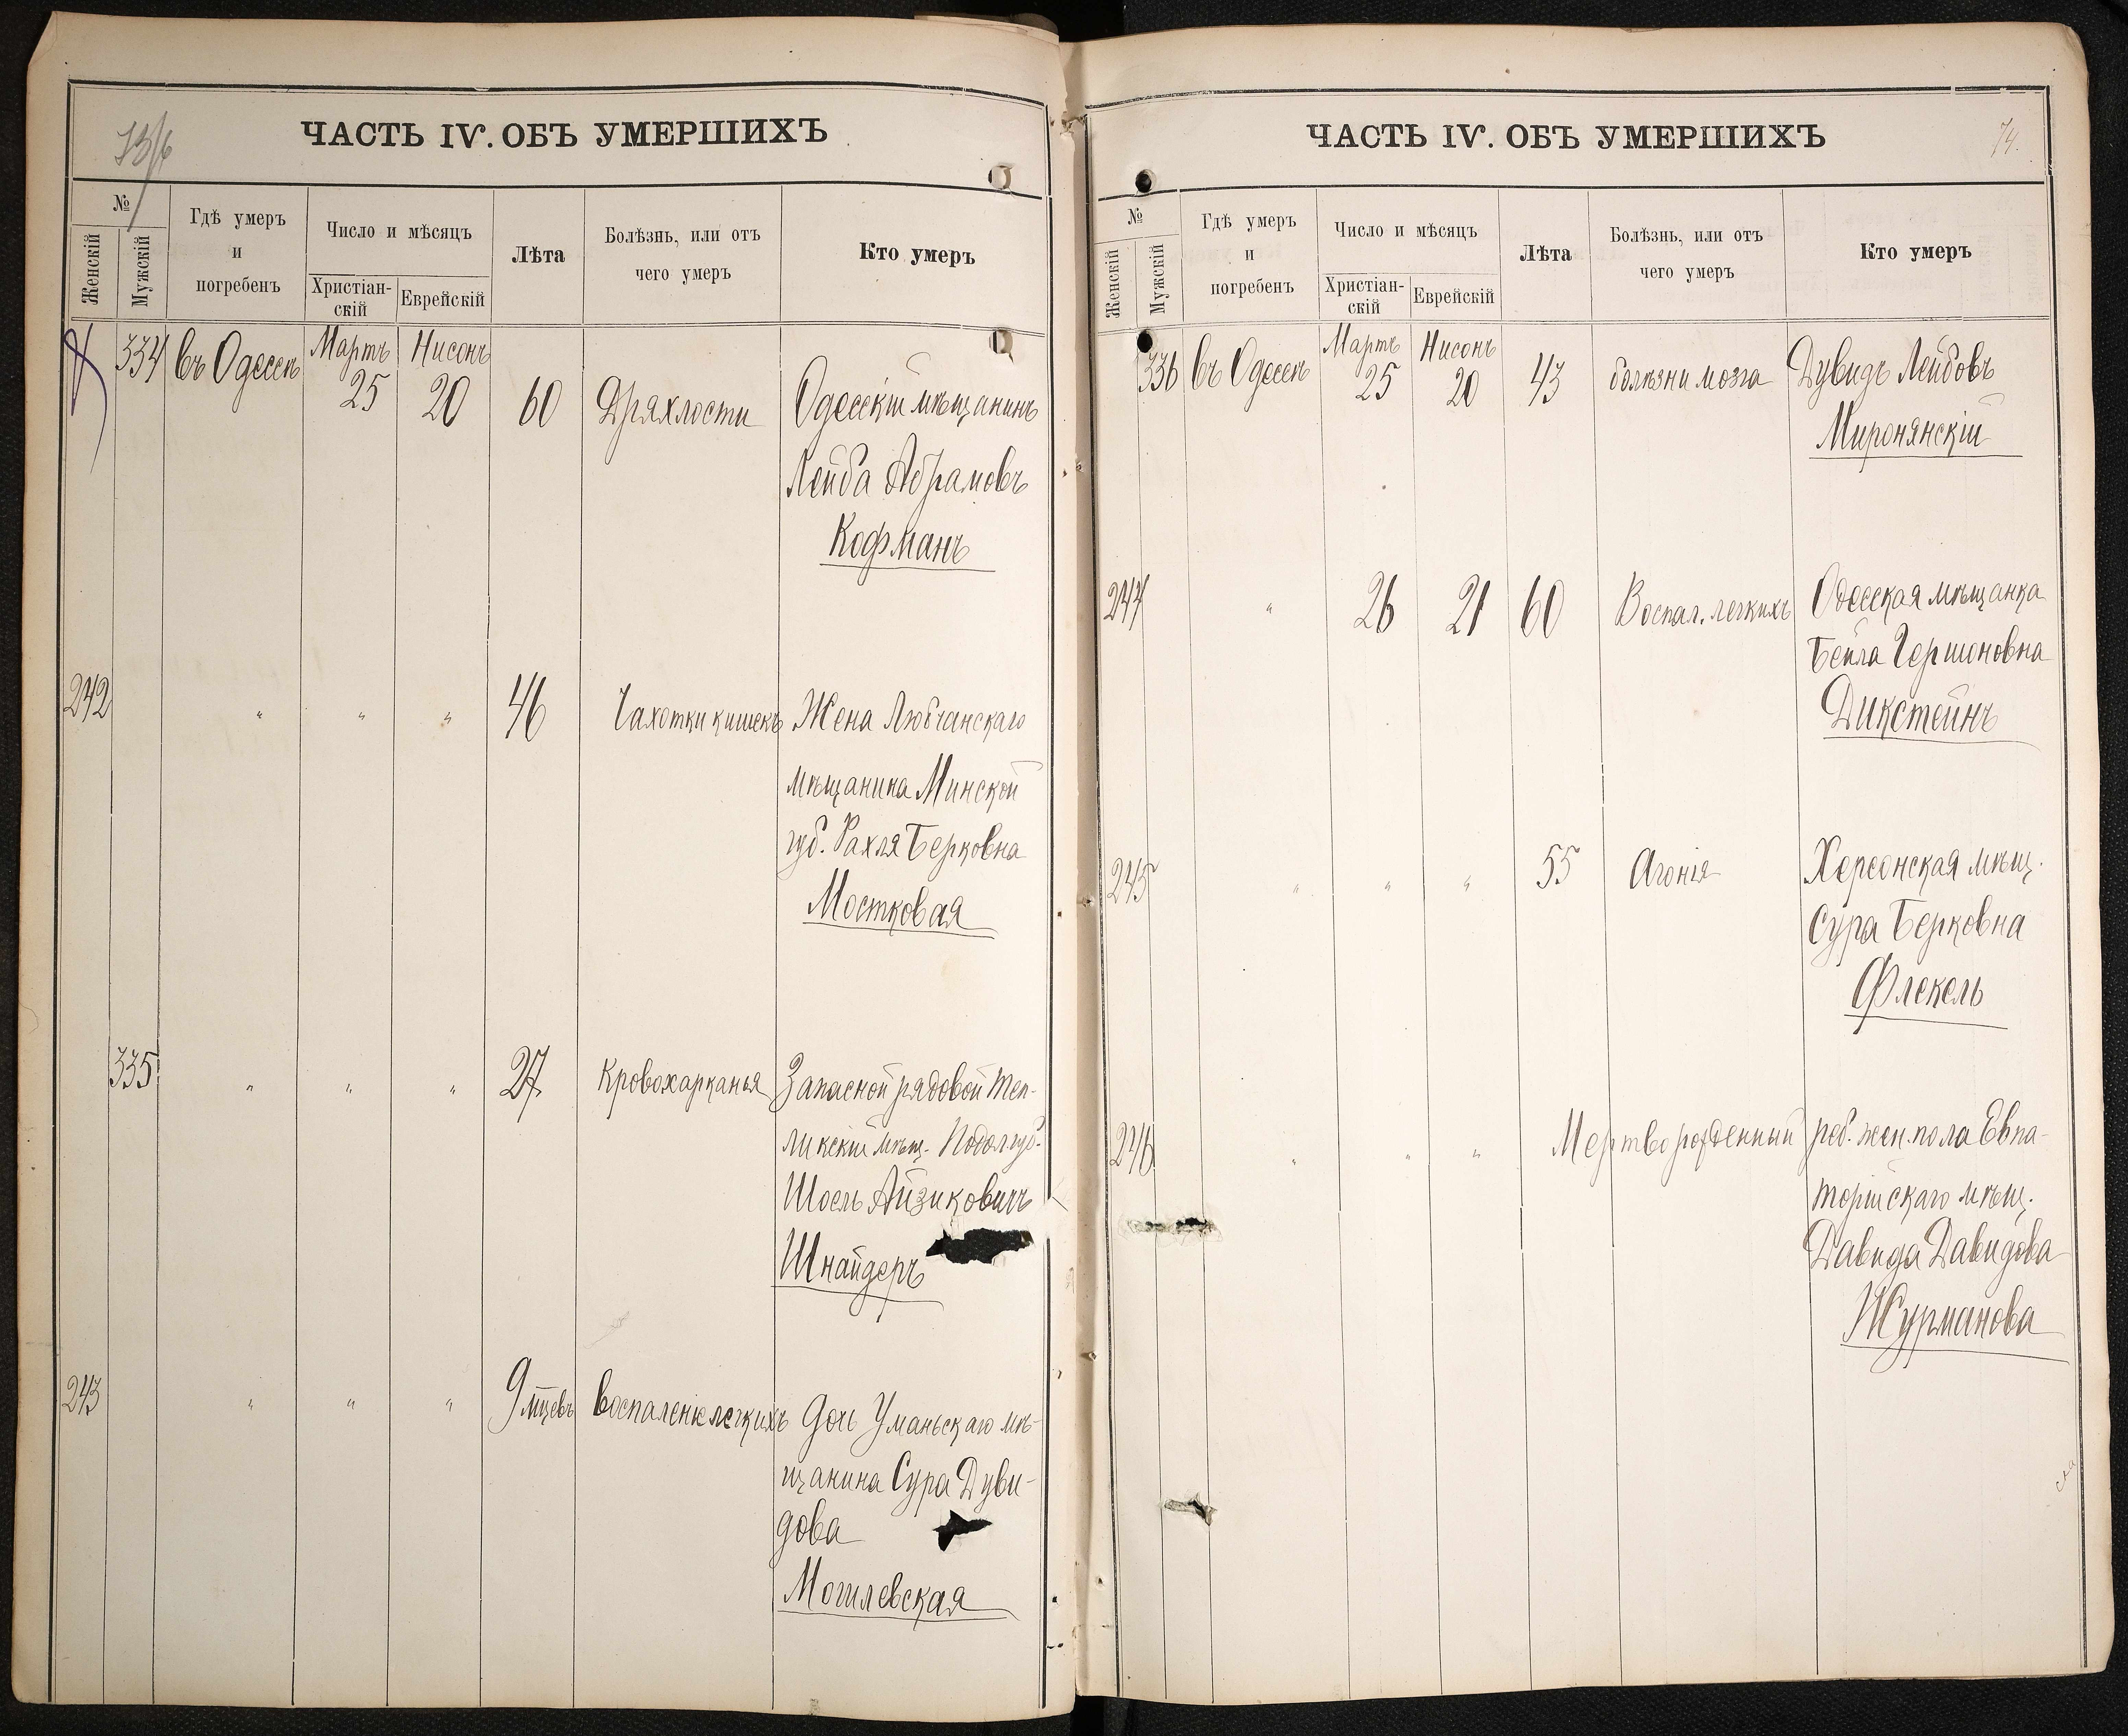 73/6
ЧАСТЬ IV. ОБЪ УМЕРШИХЪ
№
Женскій
Мужскій
Гдѣ умеръ и погребенъ
Число и мѣсяцъ
Христіан-скій
Еврейскій
Лѣта
Болѣзнь, или отъ чего умеръ
Кто умеръ
334 въ Одессѣ Мартъ 25 Нисонъ 20 60 Дряхлости Одесскій мѣщанинъ
Лейба Абрамовъ
Кофманъ
242 " " " 46 Чахотки кишекъ Жена Любчанскаго
мѣщанина Минской
губ. Рахля Берковна
Мостковая
335 " " " 27 Кровохарканья Запасной рядовой Теп-
ликскій мѣщ. Подол. губ.
Шоель Айзиковичъ
Шнайдеръ
243 " " " 9 мцевъ Воспаленіе легкихъ Дочь Уманьскаго мѣ-
щанина Сура Дуви-
дова
Могилевская
ЧАСТЬ IV. ОБЪ УМЕРШИХЪ
74.
№
Женскій
Мужскій
Гдѣ умеръ и погребенъ
Число и мѣсяцъ
Христіан-скій
Еврейскій
Лѣта
Болѣзнь, или отъ чего умеръ
Кто умеръ
336 въ Одессѣ Мартъ 25 Нисонъ 20 43 болѣзни мозга Дувидъ Лейбовъ
Миронянскій
244 " 26 21 60 Воспал. легкихъ Одесская мѣщанка
Бейла Гершоновна
Дикстейнъ
245 " " " 55 Агонія Херсонская мѣщ.
Сура Берковна
Флекель
246 " " " Мертворожденный реб. жен. пола Евпа-
торійскаго мѣщ.
Давида Давидова
Журманова